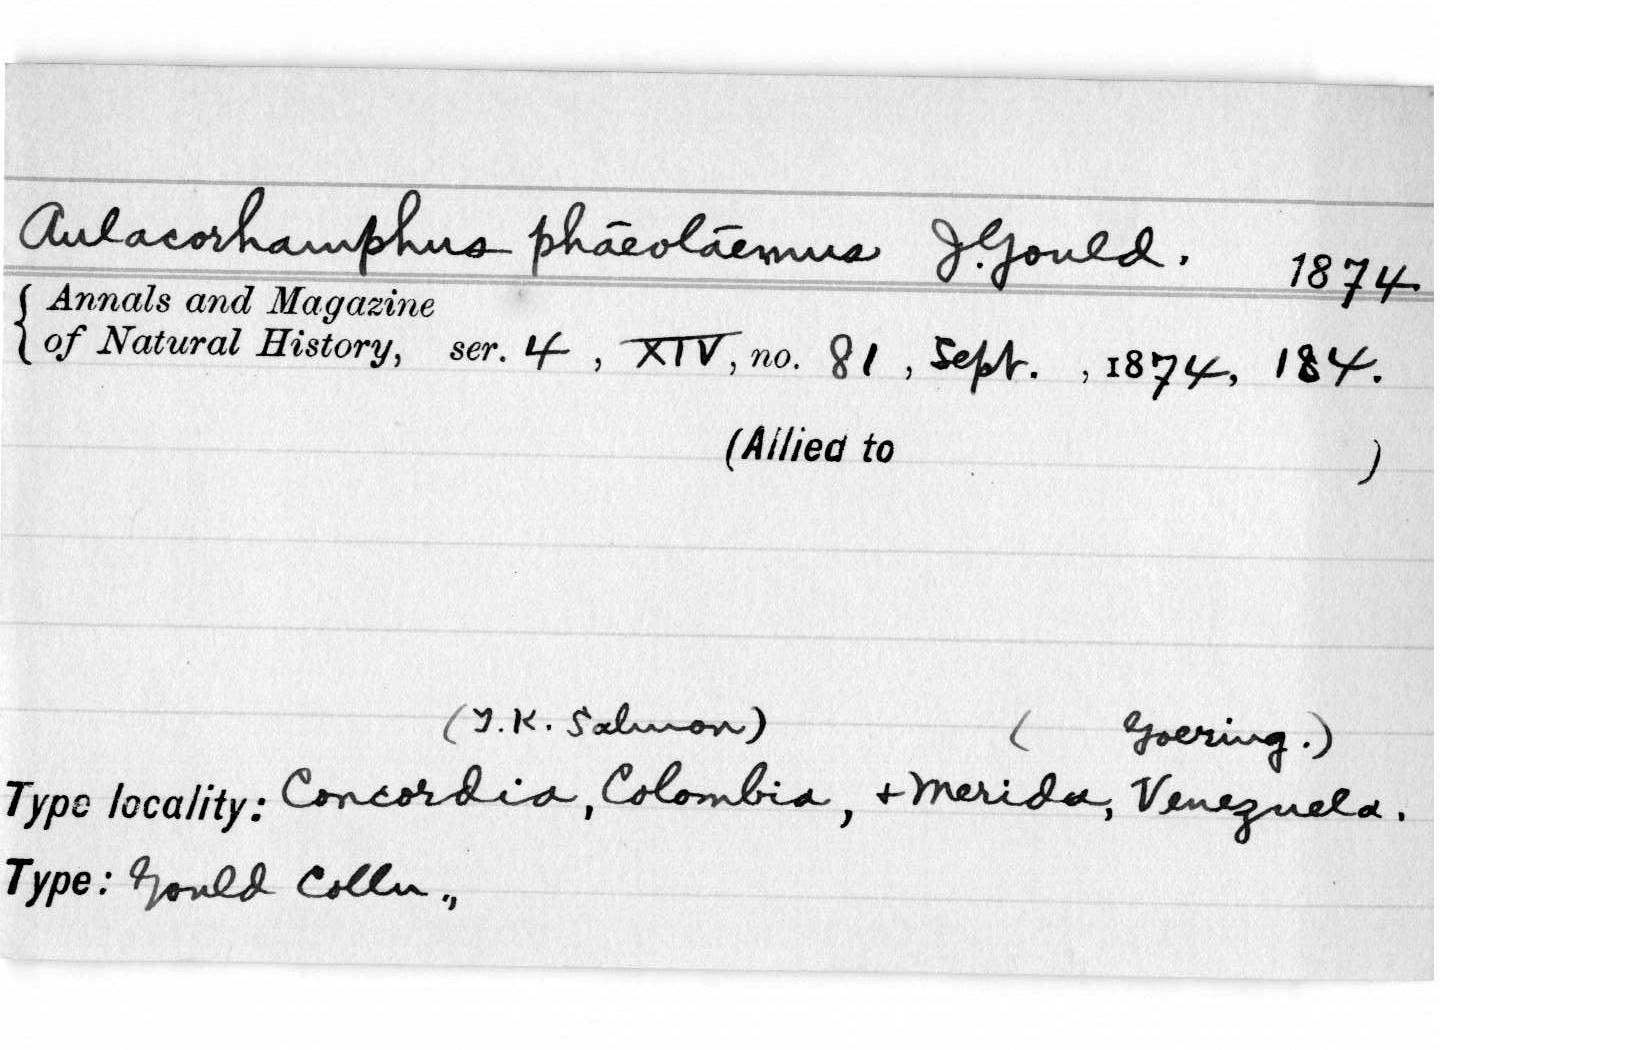 Aulacorhamphus phāeolāemus J. Gould. 1874.
{ Annals and Magazine
of Natural History, ser. 4, XIV, no. 81, Sept., 1874, 184.
(Allied to )
(T.K. Salmon) ( Goering.)
Type locality: Concordia, Colombia, + Merida, Venezuela.
Type: Gould Colln.,